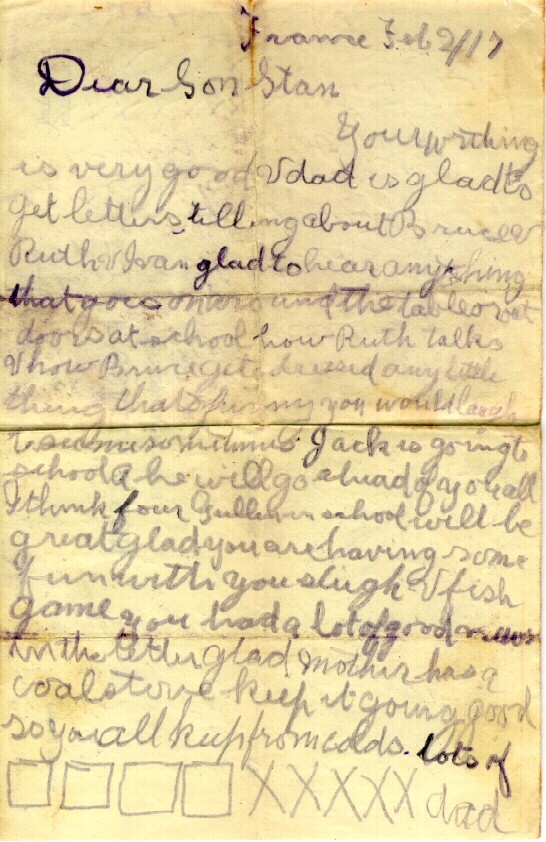 France Feb 2/17
Dear Son Stan
Your writing
is very good & dad is glad to
get letters telling about Bruce &
Ruth & Ivan glad to hear anything
that goes on around the table or out
doors at school how Ruth talks
& how Bruce gets dressed any little
thing thats funny you would laugh
to see me sometimes Jack is going to
school & he will go ahead of you all
I think four Gullen in school will be
great glad you are having some
fun with you sleigh & fish
game you had a lot of good news
in the letter glad Mother has a
coal stove keep it going good
so you all keep from colds. lots of
XXXXX dad